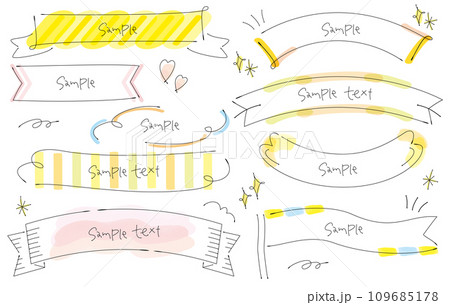 Sample
Sample
Sample
Sample text
Sample
Sample text
Sample
Sample text
Sample
PIXTA
109685178